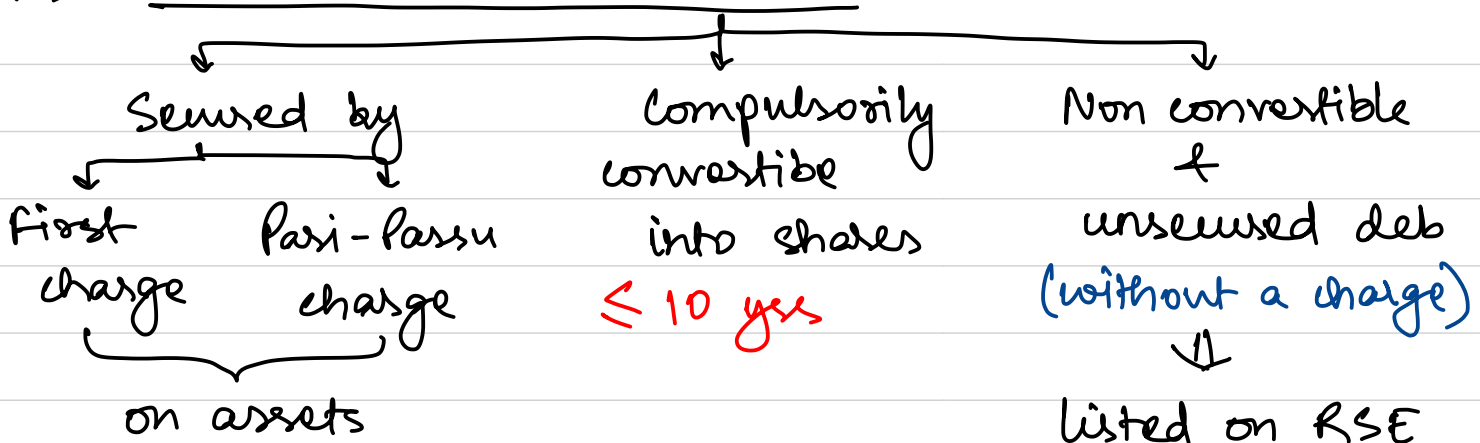 Secured by
First charge
Pari-Passu charge
on assets
Compulsorily
convertibe
into shares
≤ 10 yrs
Non convertible
+
unsecured deb
(without a charge)
listed on RSE